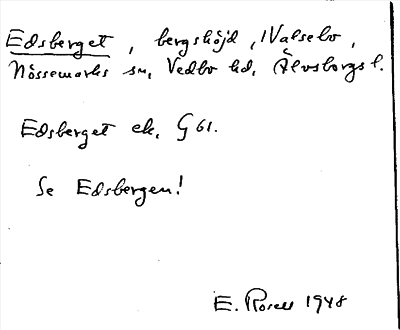 Edsberget, bergshöjd, Valsebo,
Nössemarks sn, Vedbo hd, Älvsborgs l.
Edsberget ek, G 61.
Se Edsbergen!
E. Rosell 1948